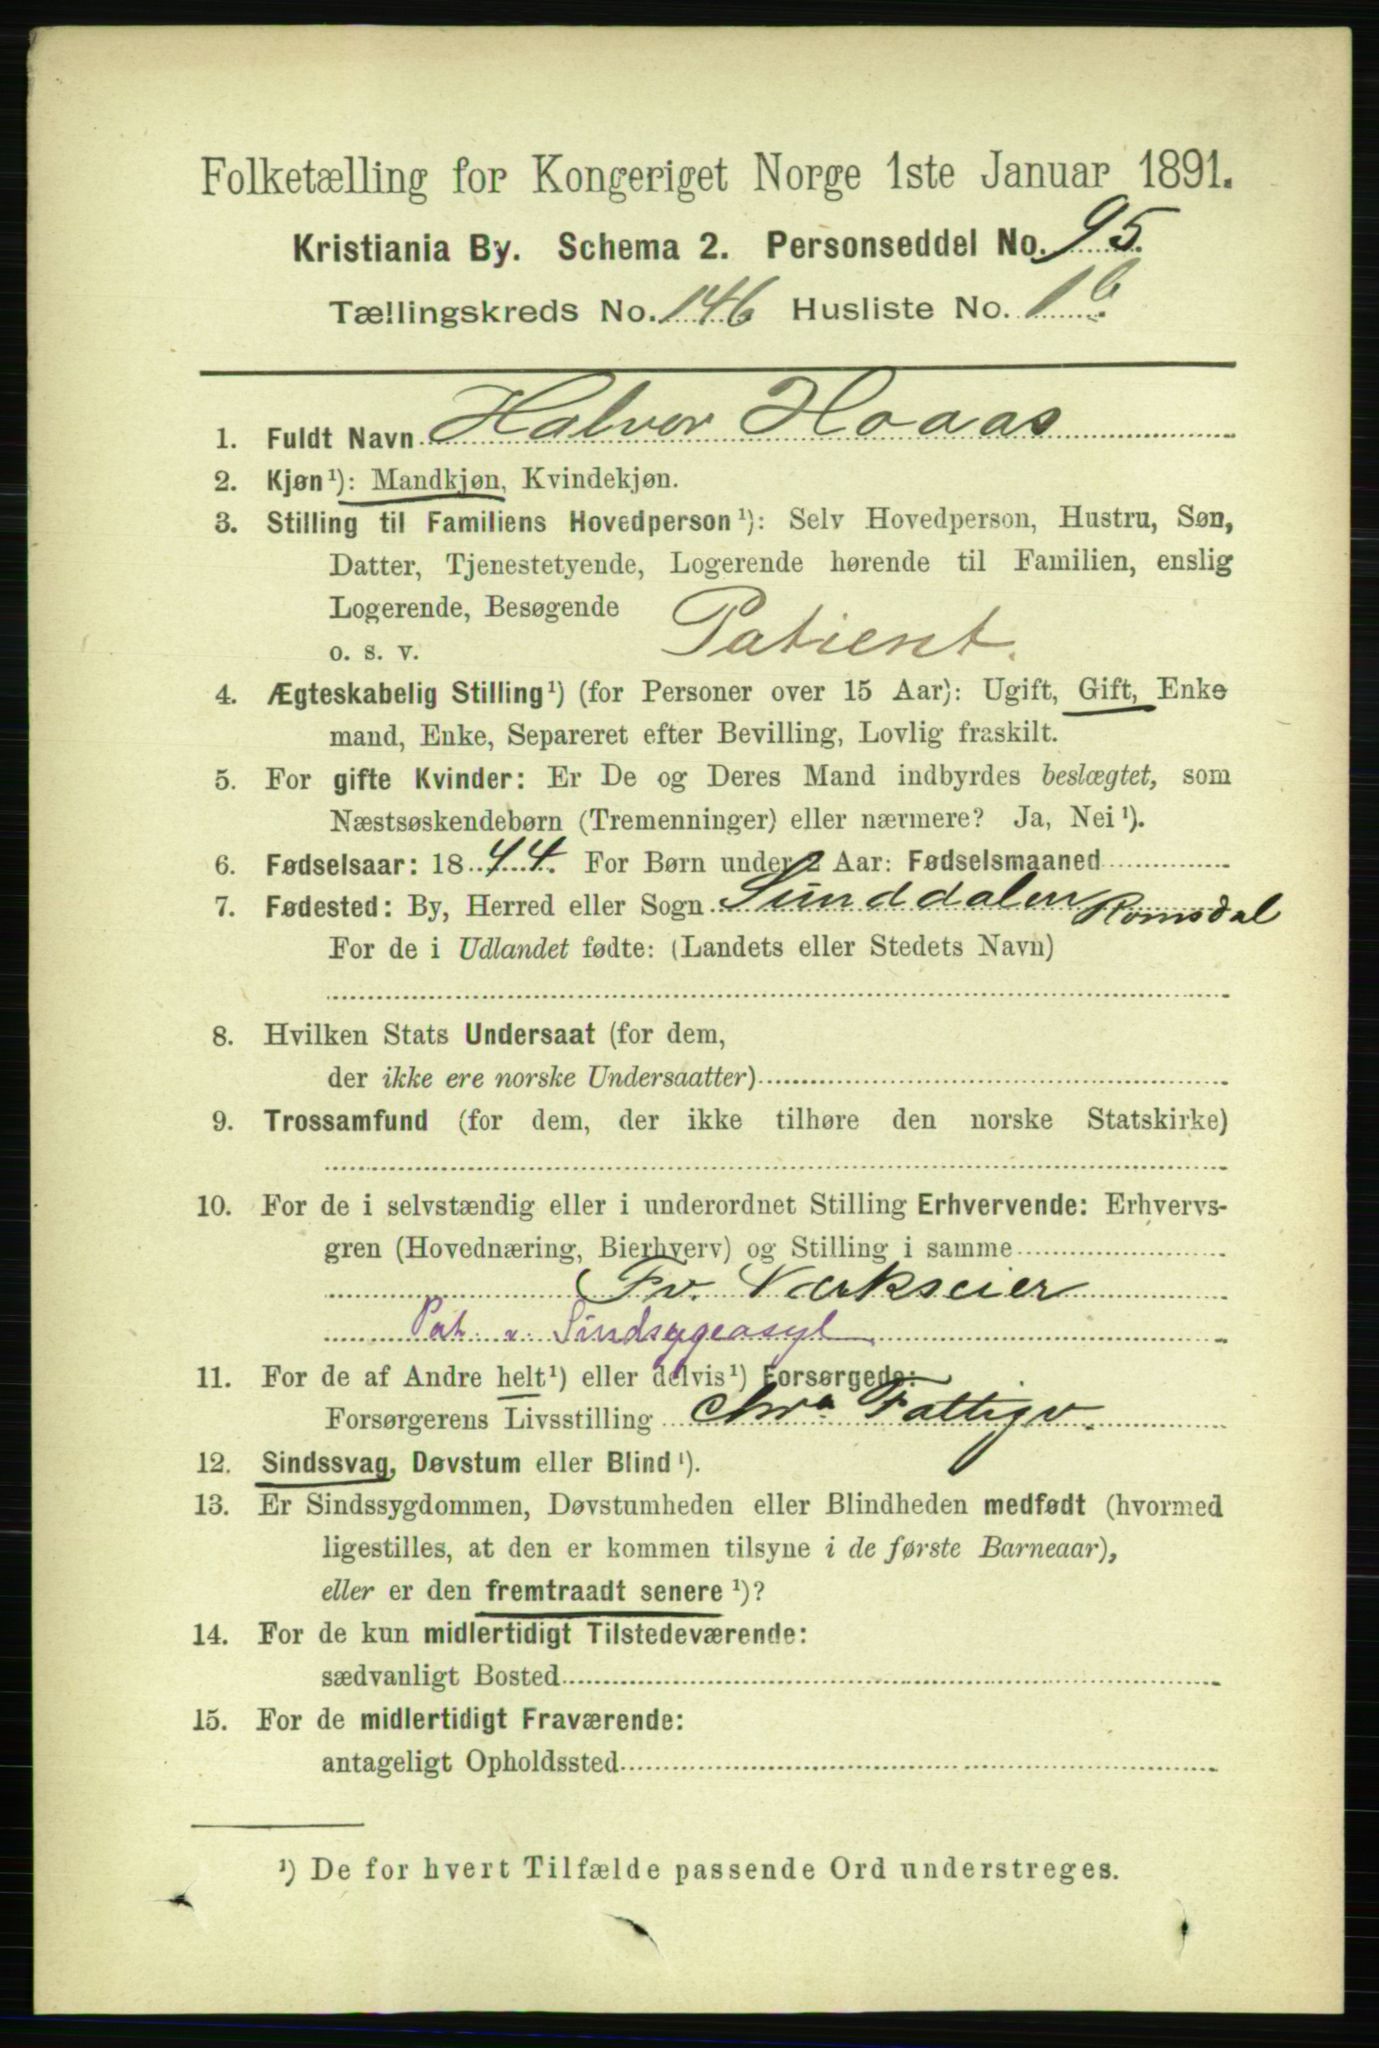 Folketælling for Kongeriget Norge 1ste Januar 1891.
Kristiania By. Schema 2. Personseddel No. 95.
Tællingskreds No. 146 Husliste No. 1b.
1. Fuldt Navn Halvor Hoaas
2. Kjøn¹): Mandkjøn, Kvindekjøn.
3. Stilling til Familiens Hovedperson¹): Selv Hovedperson, Hustru, Søn,
Datter, Tjenestetyende, Logerende hørende til Familien, enslig
Logerende, Besøgende
o. s. v. Patient.
4. Ægteskabelig Stilling¹) (for Personer over 15 Aar): Ugift, Gift, Enke
mand, Enke, Separeret efter Bevilling, Lovlig fraskilt.
5. For gifte Kvinder: Er De og Deres Mand indbyrdes beslægtet, som
Næstsøskendebørn (Tremenninger) eller nærmere? Ja, Nei¹).
6. Fødselsaar: 1844. For Børn under 2 Aar: Fødselsmaaned
7. Fødested: By, Herred eller Sogn Sunddalen Romsdal
For de i Udlandet fødte: (Landets eller Stedets Navn)
8. Hvilken Stats Undersaat (for dem,
der ikke ere norske Undersaatter)
9. Trossamfund (for dem, der ikke tilhøre den norske Statskirke)
10. For de i selvstændig eller i underordnet Stilling Erhvervende: Erhvervs-
gren (Hovednæring, Bierhverv) og Stilling i samme
Fv. Værkseier
Pat. v. Sindsygeasyl
11. For de af Andre helt¹) eller delvis¹) Forsørgede:
Forsørgerens Livsstilling Chra Fattigv.
12. Sindssvag, Døvstum eller Blind¹).
13. Er Sindssygdommen, Døvstumheden eller Blindheden medfødt (hvormed
ligestilles, at den er kommen tilsyne i de første Barneaar),
eller er den fremtraadt senere¹)?
14. For de kun midlertidigt Tilstedeværende:
sædvanligt Bosted
15. For de midlertidigt Fraværende:
antageligt Opholdssted
¹) De for hvert Tilfælde passende Ord understreges.